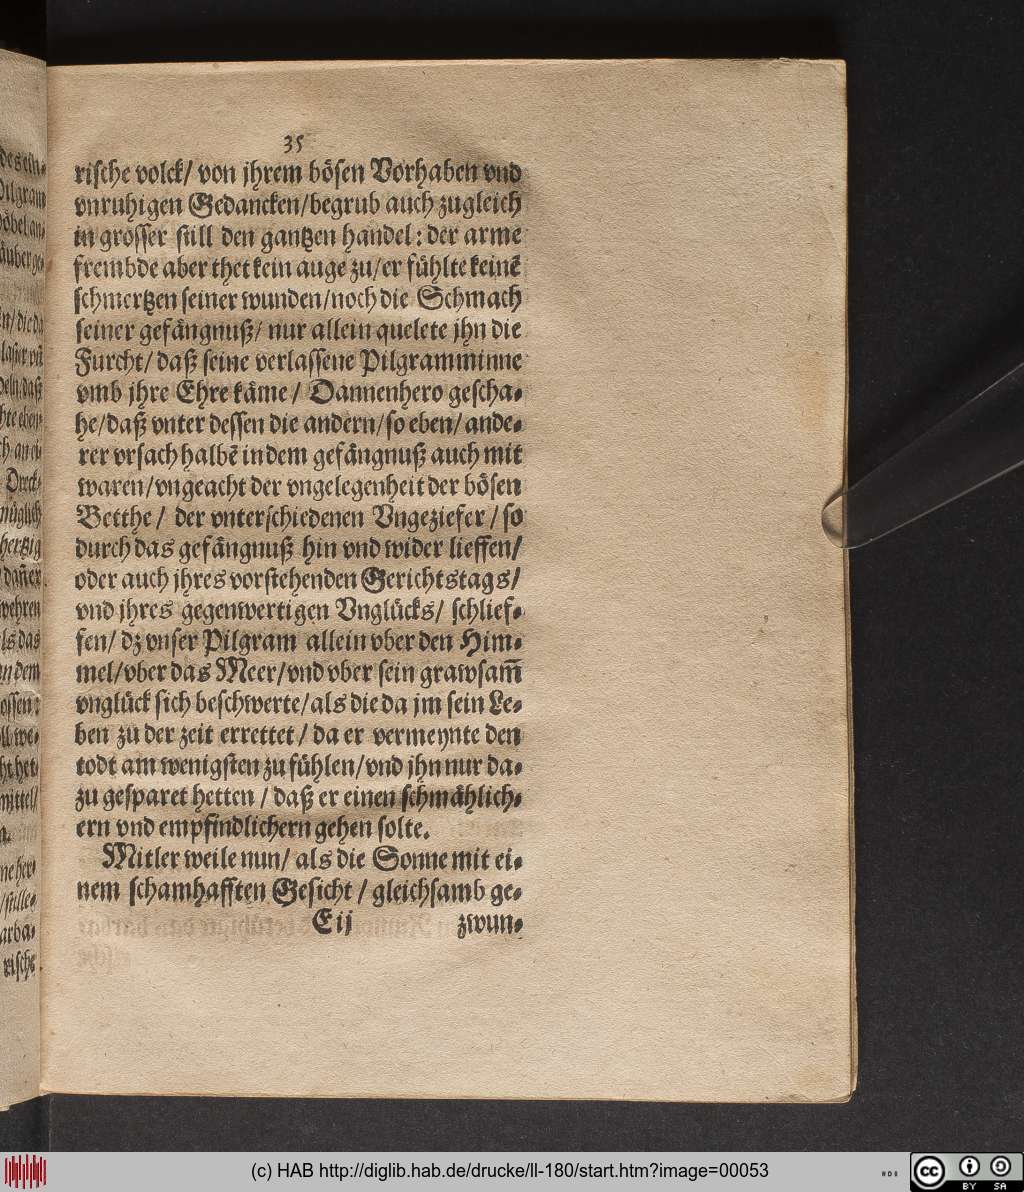 35
rische volck/ von jhrem bösen Vorhaben vnd
vnruhigen Gedancken/begrub auch zugleich
in grosser still den gantzen handel: der arme
frembde aber thet kein auge zu/er fühlte keinē
schmertzen seiner wunden/noch die Schmach
seiner gefängnuß/ nur allein quelete jhn die
Furcht/ daß seine verlassene Pilgramminne
vmb jhre Ehre käme/ Dannenhero gescha-
he/daß vnter dessen die andern/so eben/ ande-
rer vrsach halbē in dem gefängnuß auch mit
waren/vngeacht der vngelegenheit der bösen
Betthe/ der vnterschiedenen Vngeziefer/so
durch das gefängnuß hin vnd wider lieffen/
oder auch jhres vorstehenden Gerichtstags/
vnd jhres gegenwertigen Vnglücks/ schlief-
fen/ dz vnser Pilgram allein vber den Him-
mel/vber das Meer/vnd vber sein grawsam̄
vnglück sich beschwerte/als die da jm sein Le-
ben zu der zeit errettet/ da er vermeynte den
todt am wenigsten zu fühlen/vnd jhn nur da-
zu gesparet hetten/ daß er einen schmählich-
ern vnd empfindlichern gehen solte.
Mitler weile nun/ als die Sonne mit ei-
nem schamhafften Gesicht/ gleichsamb ge-
Eij zwun-
(c) HAB http://diglib.hab.de/drucke/ll-180/start.htm?image=00053
cc BY SA